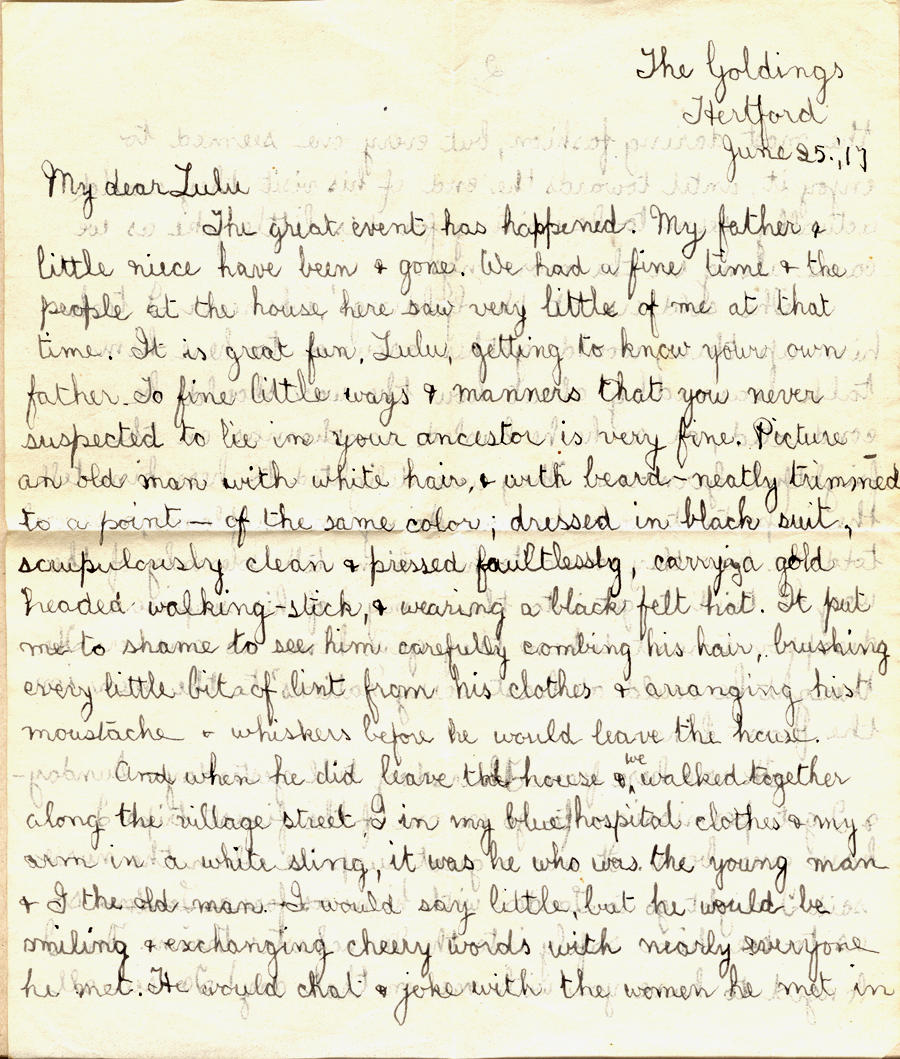 The Goldings
Hertford
June 25.,'17
My dear Lulu
The great event has happened. My father &
little niece have been & gone. We had a fine time & the
people at the house here saw very little of me at that
time. It is great fun, Lulu, getting to know your own
father. To fine little ways & manners that you never
suspected to lie in your ancestor is very fine. Picture
an old man with white hair, & with beard - neatly trimmed
to a point — of the same color; dressed in black suit,
scrupulously clean & pressed faultlessly, carrying a gold
headed walking-stick, & wearing a black felt hat. It put
me to shame to see him carefully combing his hair, brushing
every little bit of lint from his clothes & arranging his
moustache & whiskers before he would leave the house.
And when he did leave the house & we walked together
along the village street, I in my blue hospital clothes & my
arm in a white sling, it was he who was the young man
& I the old man. I would say little, but he would be
smiling & exchanging cheery words with nearly everyone
he met. He would chat & joke with the women he met in